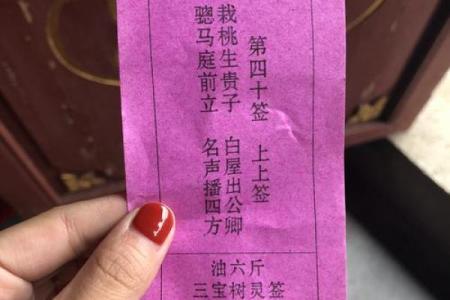 第四十签 上上签
栽桃生贵子 白屋出公卿
骢马庭前立 名声播四方
油六斤
三宝树灵签